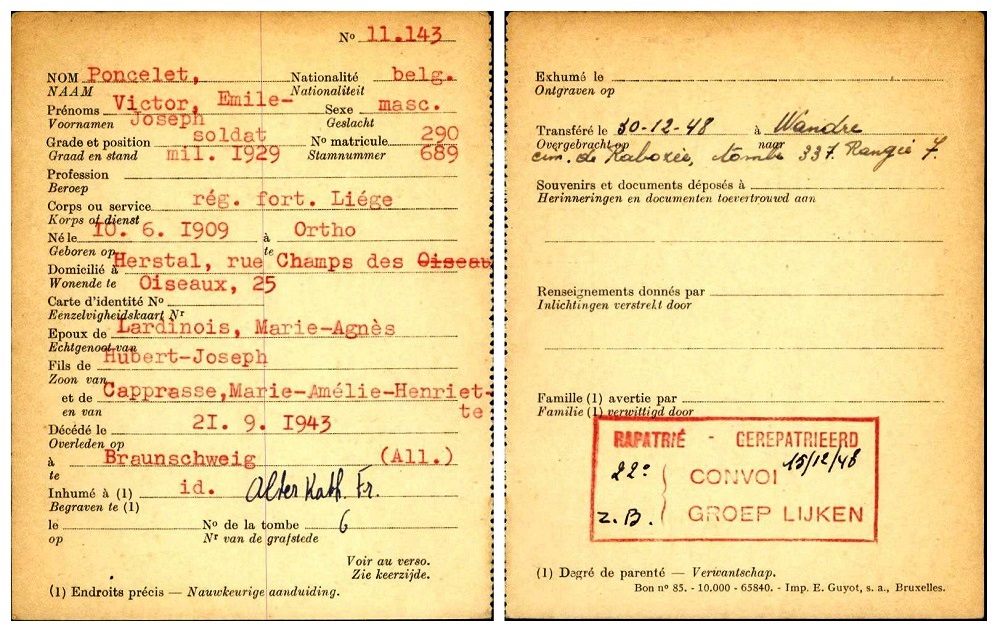 Nº 11.143
NOM Poncelet, Nationalité belg.
NAAM Nationaliteit
Prénoms Victor, Emile- Sexe masc.
Voornamen Joseph Geslacht
Grade et position soldat Nº matricule 290
Graad en stand mil. I929 Stamnummer 689
Profession
Beroep
Corps ou service rég. fort. Liége
Korps of dienst
Né le 10. 6. I909 à Ortho
Geboren op te
Domicilié à Herstal, rue Champs des Oiseau
Wonende te Oiseaux, 25
Carte d'identité Nº
Eenzelvigheidskaart Nr
Epoux de Lardinois, Marie-Agnès
Echtgenoot van
Fils de Hubert-Joseph
Zoon van
et de Capprasse,Marie-Amélie-Henriet-
en van te
Décédé le 2I. 9. I943
Overleden op
à Braunschweig (All.)
te
Inhumé à (1) id. Alter Kath. Fr.
Begraven te (1)
le Nº de la tombe 6
op Nr van de grafstede
Voir au verso.
Zie keerzijde.
(1) Endroits précis — Nauwkeurige aanduiding.
Exhumé le
Ontgraven op
Transféré le 30-12-48 à Wandre
Overgebracht op naar
cim. de Rabozée, tombe 337. Rangée 7.
Souvenirs et documents déposés à
Herinneringen en documenten toevertrouwd aan
Renseignements donnés par
Inlichtingen verstrekt door
Famille (1) avertie par
Familie (1) verwittigd door
RAPATRIÉ - GEREPATRIEERD
22e CONVOI 15/12/48
Z.B. GROEP LIJKEN
(1) Degré de parenté — Verwantschap.
Bon nº 85. - 10.000 - 65840. - Imp. E. Guyot, s. a., Bruxelles.